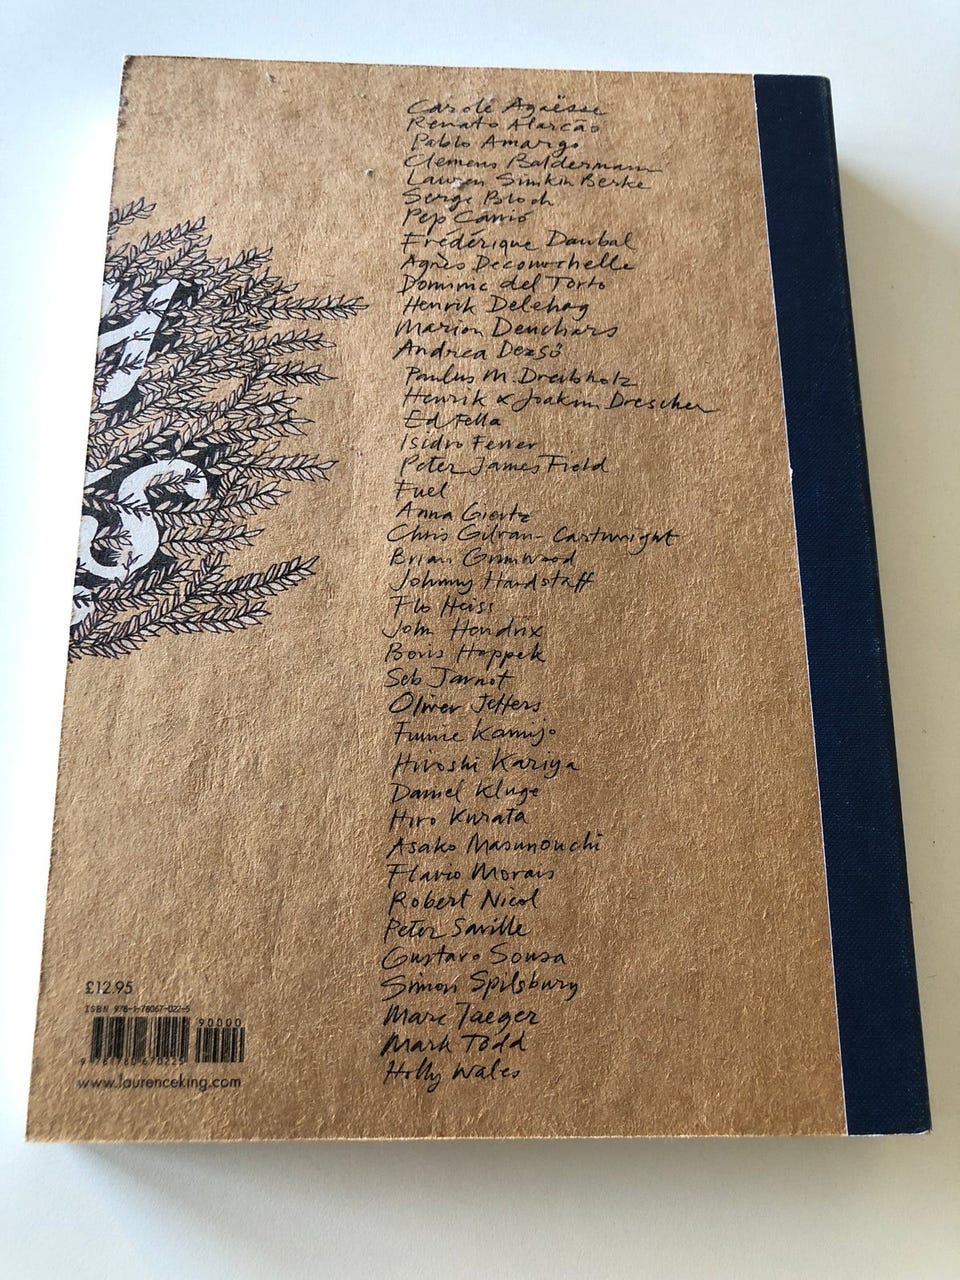 Carole Agaësse
Renato Alarcão
Pablo Amargo
Clemens Baldermann
Lauren Simkin Berke
Serge Bloch
Pep Carrió
Frédérique Daubal
Agnès Decourchelle
Dominic del Torto
Henrik Delehag
Marion Deuchars
Andrea Dezsö
Paulus M. Dreibholz
Henrik & Joakim Drescher
Ed Fella
Isidro Ferrer
Peter James Field
Fuel
Anna Giertz
Chris Gilvan-Cartwright
Brian Grimwood
Johnny Hardstaff
Flo Heiss
John Hendrix
Boris Hoppek
Seb Jarnot
Oliver Jeffers
Fumie Kamijo
Hiroshi Kariya
Daniel Kluge
Hiro Kurata
Asako Masunouchi
Flavio Morais
Robert Nicol
Peter Saville
Gustavo Sousa
Simon Spilsbury
Marc Taeger
Mark Todd
Holly Wales
£12.95
ISBN 978-1-78067-022-5
90000
www.laurenceking.com